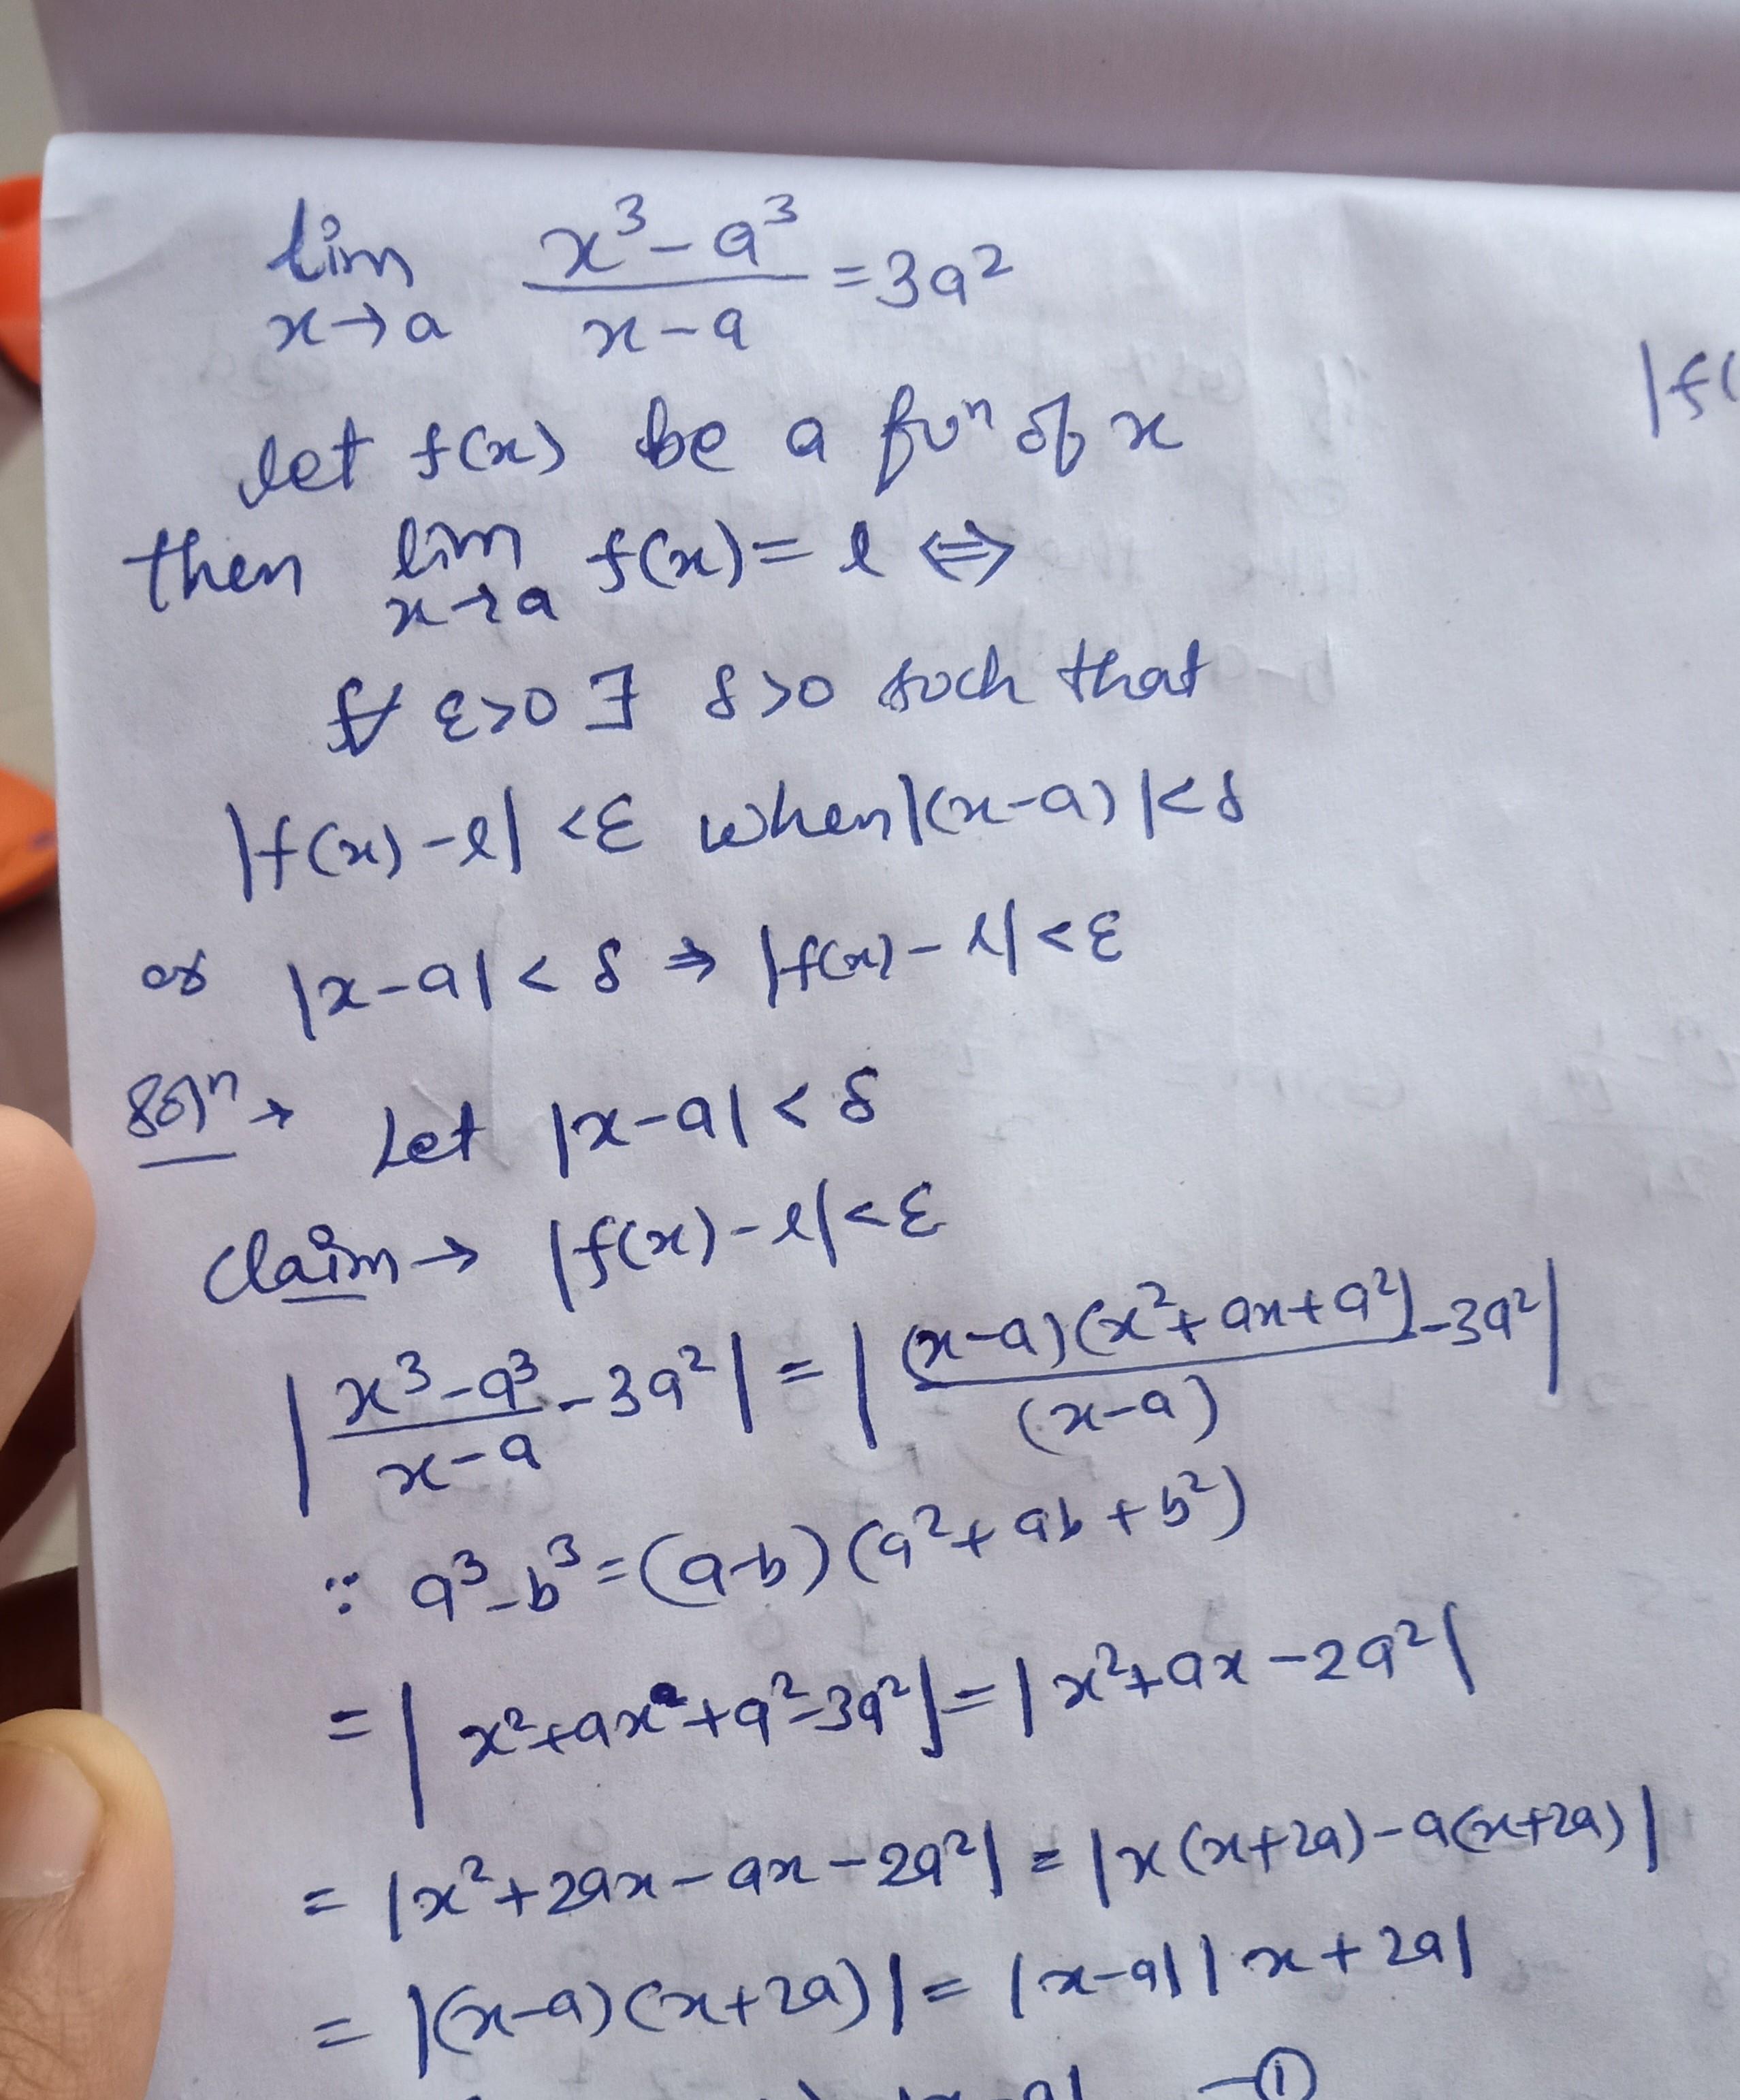 lim x³-a³ = 3a²
x→a x-a
let f(x) be a fuⁿ of x
then lim f(x) = l ⇔
x→a
∀ ε>0 ∃ δ>0 such that
|f(x)-l| <ε when |(x-a)|<δ
or |x-a| < δ ⇒ |f(x)-l|<ε
Solⁿ → Let |x-a| < δ
Claim → |f(x)-l|<ε
|x³-a³/x-a - 3a²| = |(x-a)(x²+ax+a²)/(x-a) - 3a²|
∵ a³-b³=(a-b)(a²+ab+b²)
= |x²+ax+a²-3a²| = |x²+ax-2a²|
= |x²+2ax-ax-2a²| = |x(x+2a)-a(x+2a)|
= |(x-a)(x+2a)| = |x-a||x+2a|
—①
|f(